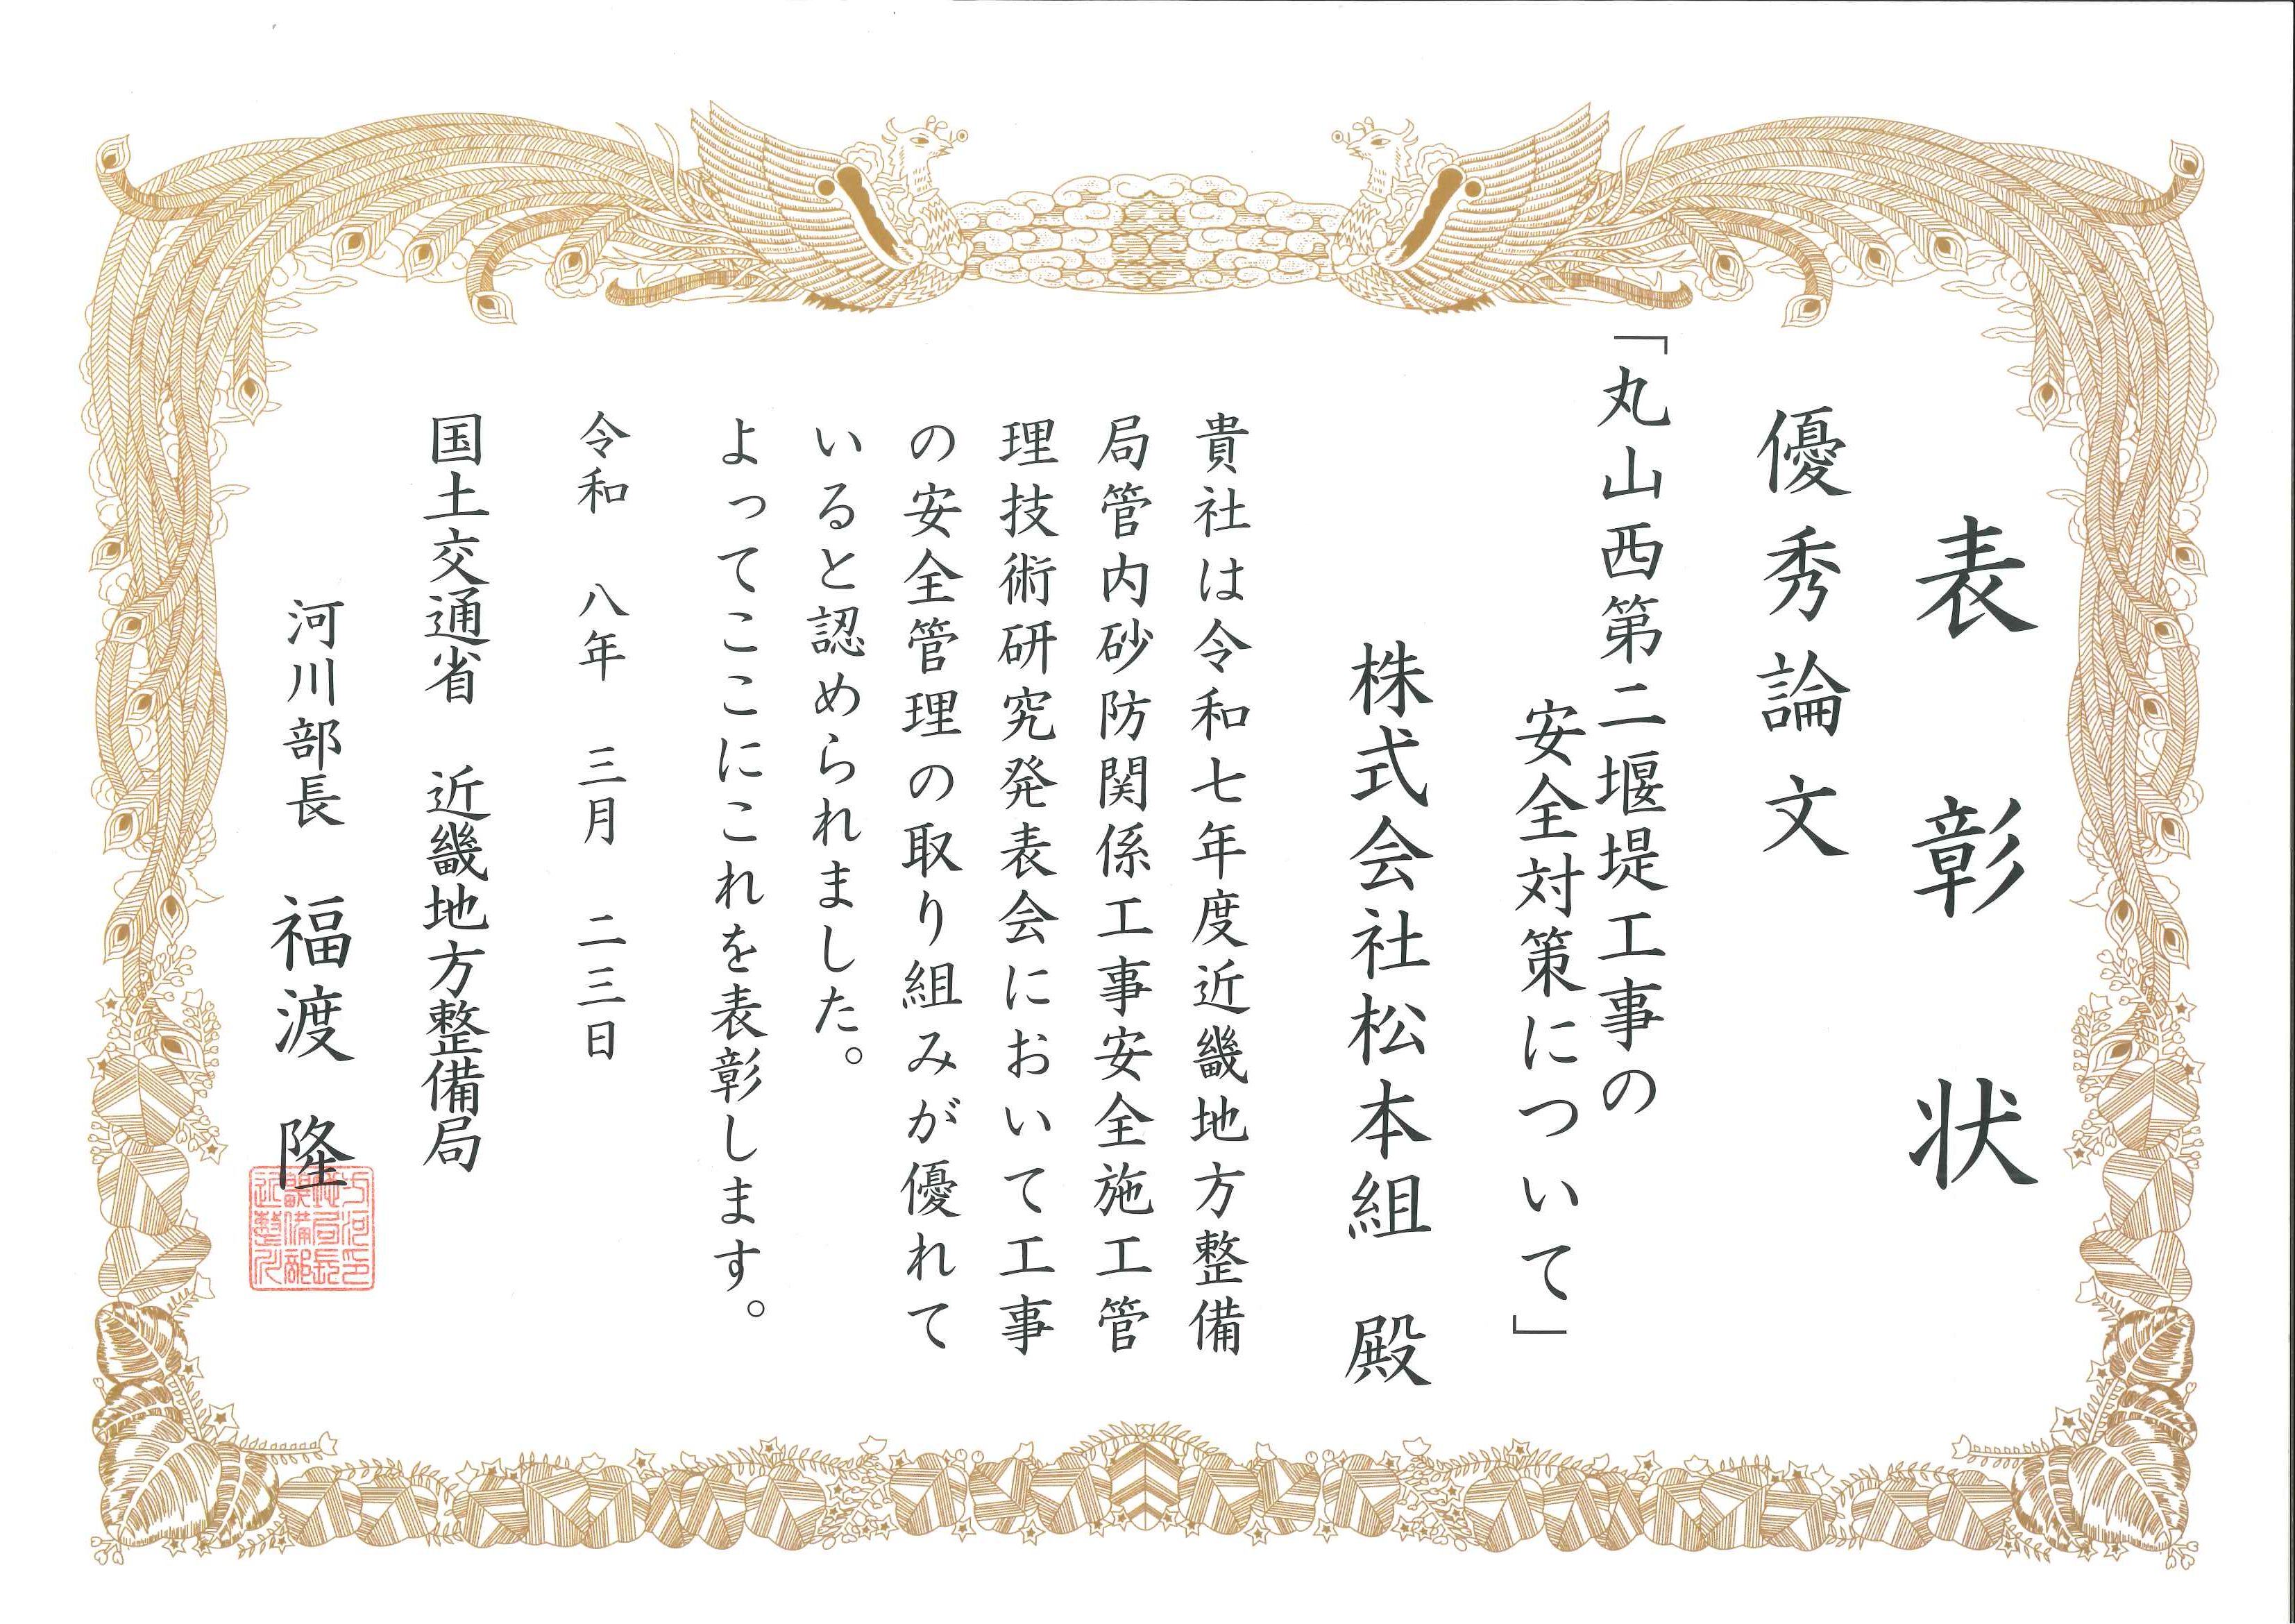 表彰状
優秀論文
「丸山西第二堰堤工事の
安全対策について」
株式会社松本組 殿
貴社は令和七年度近畿地方整備
局管内砂防関係工事安全施工管
理技術研究発表会において工事
の安全管理の取り組みが優れて
いると認められました。
よってここにこれを表彰します。
令和 八年 三月 二三日
国土交通省 近畿地方整備局
河川部長 福渡 隆